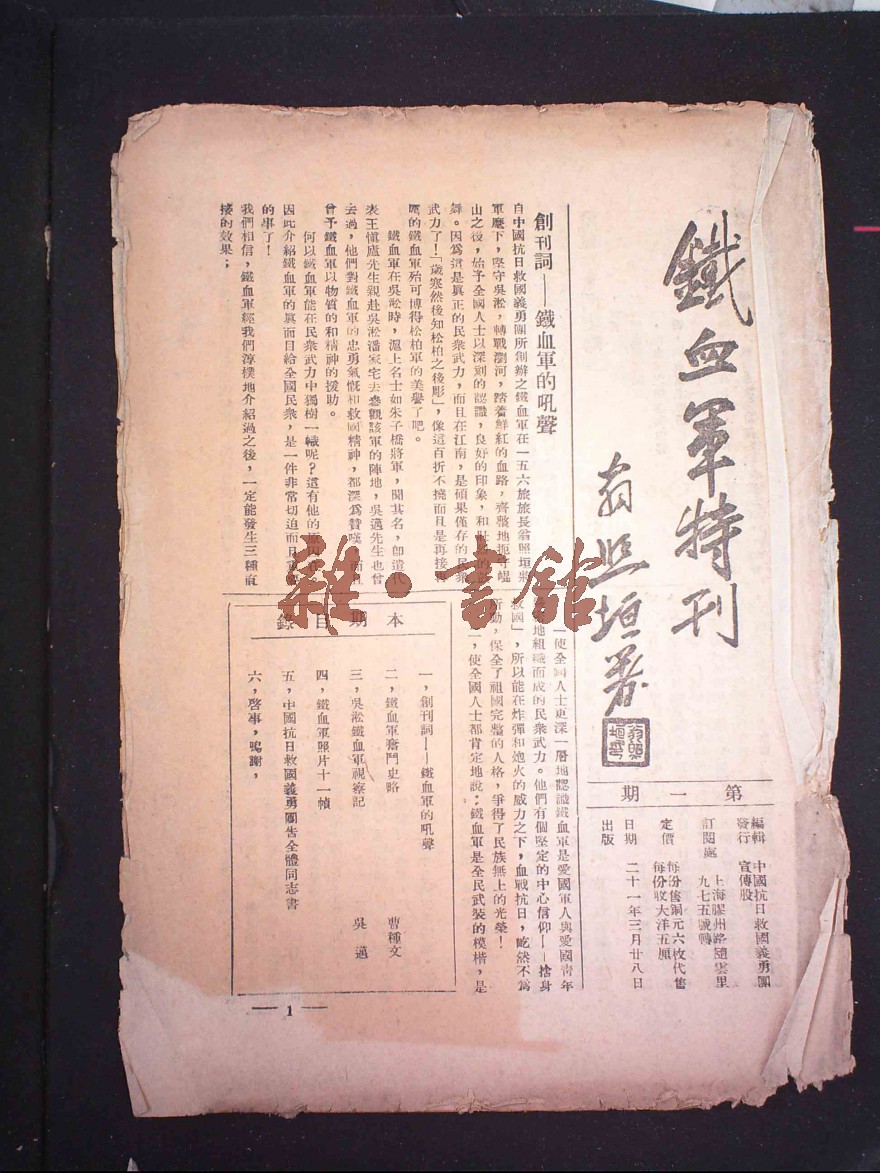 鐵血軍特刊
翁照垣署
第一期
編輯發行 中國抗日救國義勇團宣傳股
訂閱處 上海膠州路隨雲里九七五號轉
定價 每份售銅元六枚代售每份收大洋五厘
出版日期 二十一年三月廿八日
創刊詞——鐵血軍的吼聲
自中國抗日救國義勇團所創辦之鐵血軍在一五六旅旅長翁照垣將
軍麾下，堅守吳淞，轉戰瀏河，踏着鮮紅的血路，齊整地扼守崐
山之後，始予全國人士以深刻的認識，良好的印象，和
舞。因爲這是眞正的民衆武力，而且在江南，是碩果僅存的民衆
武力了！「歲寒然後知松柏之後彫」，像這百折不撓而且是再接再
厲的鐵血軍殆可博得松柏軍的美譽了吧。
鐵血軍在吳淞時，滬上名士如朱子橋將軍，聞其名，卽遣代
表王愼廬先生親赴吳淞潘家宅去參觀該軍的陣地，吳邁先生也曾
去過，他們對鐵血軍的忠勇氣慨和救國精神，都深爲贊嘆，而且
曾予鐵血軍以物質的和精神的援助。
何以鐵血軍能在民衆武力中獨樹一幟呢？這有他的原因在
因此介紹鐵血軍的眞面目給全國民衆，是一件非常切迫而且重要
的事了！
我們相信，鐵血軍經我們淳樸地介紹過之後，一定能發生三種直
接的效果；
一，使全國人士更深一層地認識鐵血軍是愛國軍人與愛國靑年
地組織而成的民衆武力。他們有個堅定的中心信仰——捨身
救國」，所以能在炸彈和炮火的威力之下，血戰抗日，屹然不爲
所動，保全了祖國完整的人格，爭得了民族無上的光榮！
二，使全國人士都肯定地說：鐵血軍是全民武裝的模楷，是
本期目錄
一，創刊詞——鐵血軍的吼聲
二，鐵血軍奮鬥史略 曹種文
三，吳淞鐵血軍視察記 吳邁
四，鐵血軍照片十一幀
五，中國抗日救國義勇團告全體同志書
六，啓事，鳴謝，
— 1 —
雜·書館